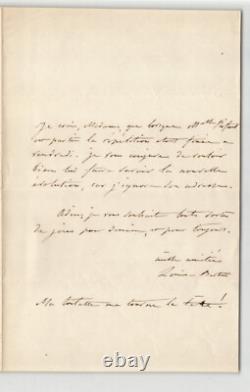 Je crois, Madame, que lorsque M
est partie la répétition était fixée à
vendredi. Je vous conjure de vouloir
bien lui faire savoir la nouvelle
résolution, car j'ignore son adresse.
Adieu, je vous souhaite toute sorte
de joies pour demain, et pour toujours.
mille amitiés
Louise Bertin
Ma toilette me tourne la tête!